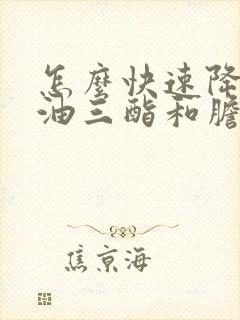 怎麼快速降
油三酯和膽
焦京海